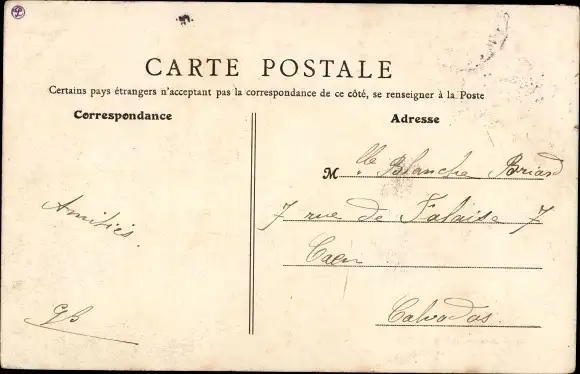 CARTE POSTALE
Certains pays étrangers n'acceptant pas la correspondance de ce côté, se renseigner à la Poste
Correspondance
Amitiés.
GB
Adresse
Mlle Blanche Briard
7 rue de Falaise 7
Caen
Calvados